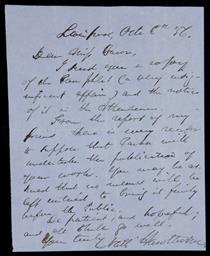 Liverpool, Oct. 6th '56.
Dear Miss Bacon.
I send you a copy
of the Pamphlet (a very insig-
nificant affair) and the notice
of it in the Athenaeum.
From the report of my
friend there is every reason
to suppose that Parker will
undertake the publication of
your works. You may be as-
sured that no means will be
left untried to bring it fairly
before the Public.
Be patient, and hopeful;
and all shall go well.
Truly
Nath Hawthorne.